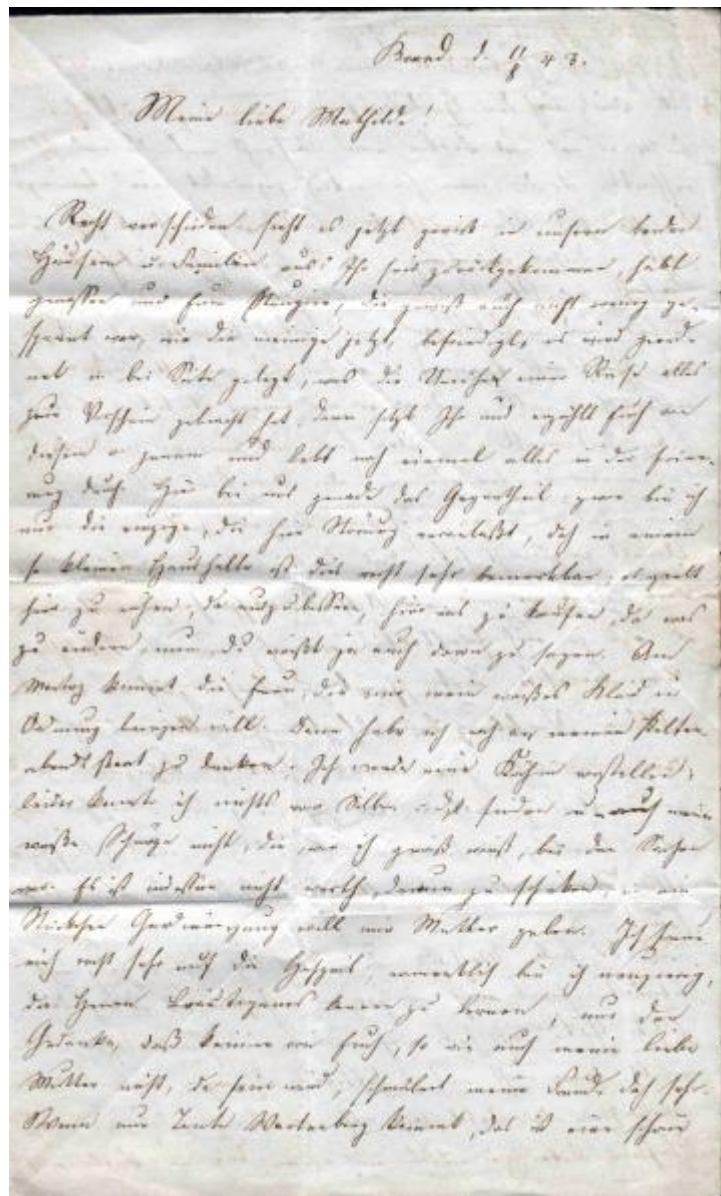 Brand d. 11/8 43.
Meine liebe Mathilde!
Recht verschieden sieht es jetzt gewiß in unsern beiden
Häusern u. Familien aus! Ihr seid zurückgekommen, habt
genossen und Eure Neugier, die gewiß auch nicht wenig ge-
spannt war, wie die meinige jetzt, befriedigt, es wird
bei Seite gelegt, was die einer Reise alles
zum Vorschein gebracht hat, dann sitzt Ihr und erzählt Euch von
diesem u. jenem und lebt noch einmal alles in der Erinne-
rung durch. Hier bei uns gerade das Gegentheil, zwar bin ich
nur die einzige, die hier Störung veranlaßt, doch in einem
so kleinen Haushalte ist dies recht sehr bemerkbar, es
hier zu nähen, da auszubessern, hier was zu kaufen, da was
zu ändern, nun du weißt ja auch davon zu sagen. Am
Montag kommt die Frau, die mir mein weißes Kleid in
Ordnung bringen will. Dann habe ich noch an meinen Polter-
abendstaat zu denken. Ich werde eine Köchin vorstellen,
leider konnte ich nichts von finden u. auch meine
weiße Schürze nicht, die, wie ich gewiß weiß, bei den Sachen
war. Es ist indessen nicht werth, darum zu schicken,
will mir Mutter geben. Ich freue
mich recht sehr auf die Hochzeit, namentlich bin ich neugierig,
den Herrn Bräutigam kennen zu lernen, nur der
Gedanke, daß keiner von Euch, so wie auch meine liebe
Mutter nicht, da sein wird, schmälert meine Freude doch sehr.
Wenn nur Tante Wartenberg kommt, das ist eine schöne